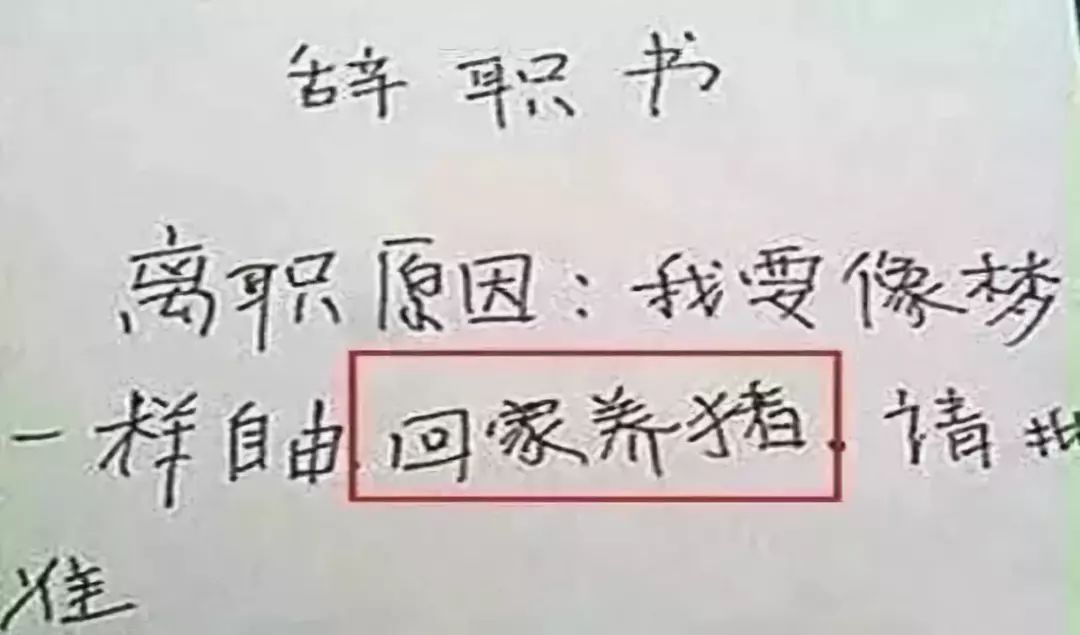 辞职书
离职原因：我要像梦
一样自由.回家养猪.请批
准